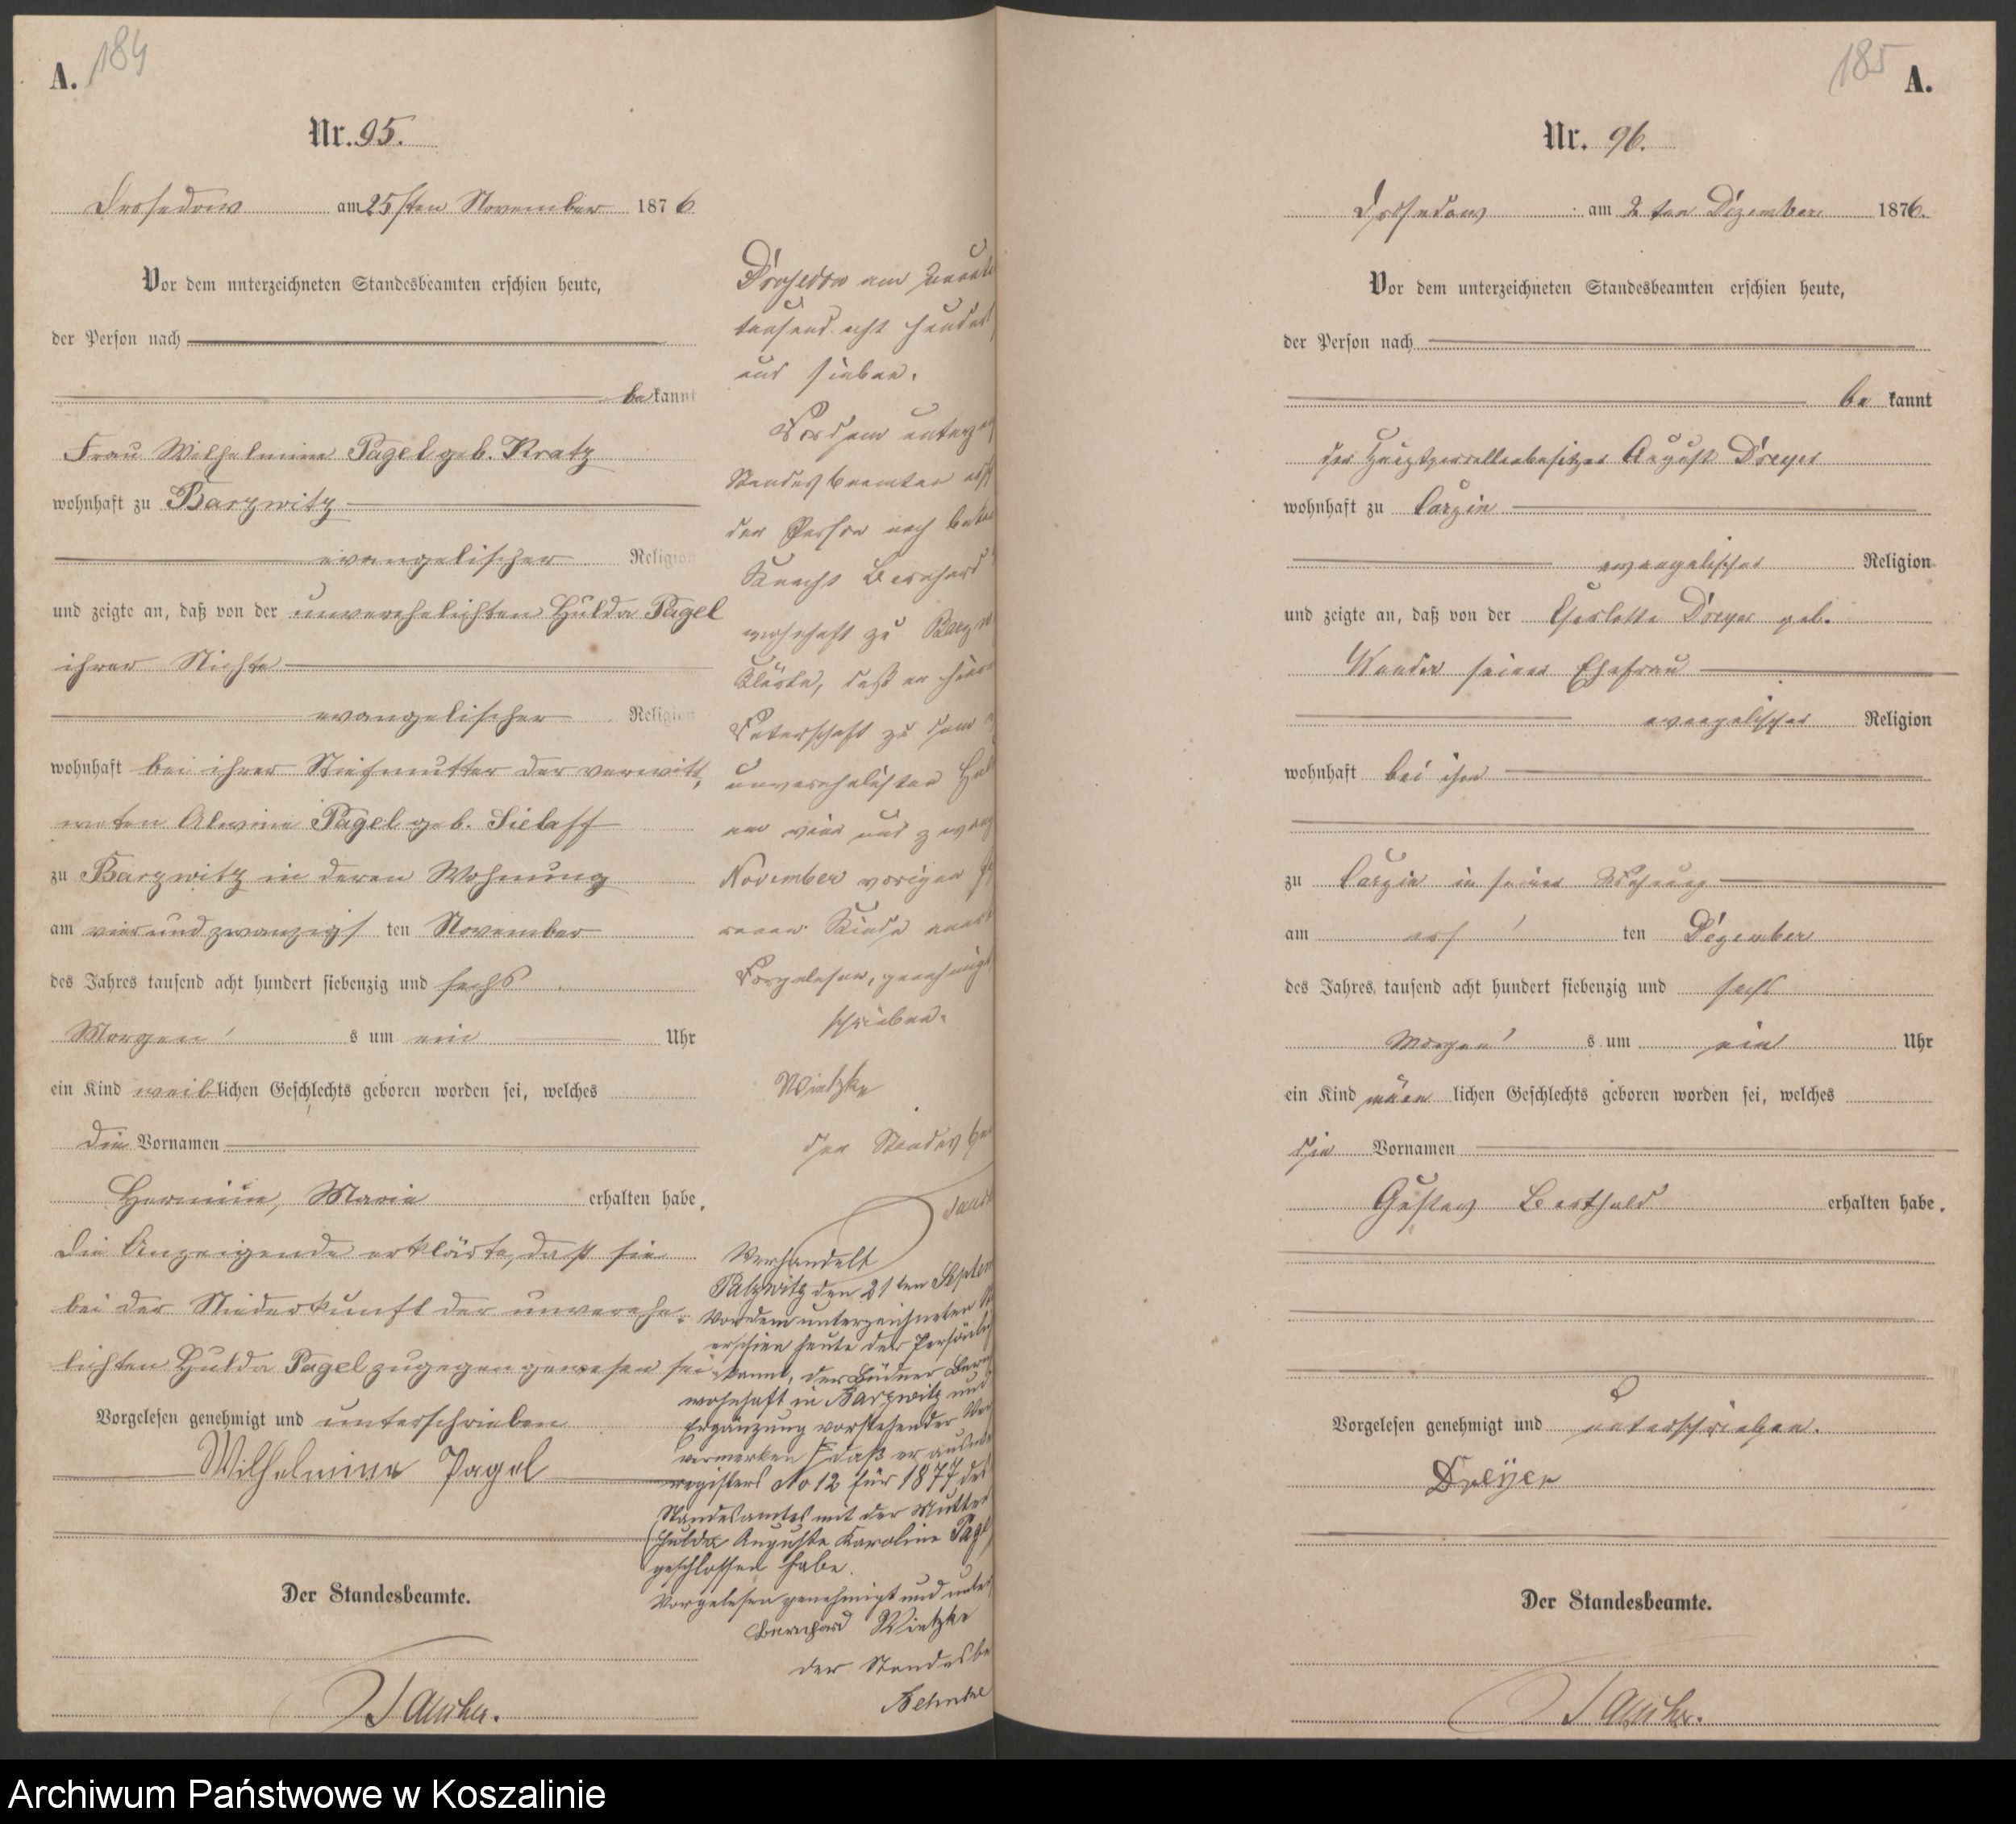 A.
184
Nr. 95.
Drosedow am 25sten November 1876
Vor dem unterzeichneten Standesbeamten erschien heute,
der Person nach
bekannt
Frau Wilhelmine Pagel geb. Kratz
wohnhaft zu Barzwitz
evangelischer Religion
und zeigte an, daß von der unverehelichten Hulda Pagel
ihrer Nichte
evangelischer Religion
wohnhaft bei ihrer Stiefmutter der verwitt,
weten Alwine Pagel geb. Sielaff
zu Barzwitz in deren Wohnung
am vierundzwanzigsten November
des Jahres tausend acht hundert siebenzig und sechs
Morgens um ein Uhr
ein Kind weiblichen Geschlechts geboren worden sei, welches
die Vornamen
Hermine, Marie erhalten habe.
Die Anzeigende erklärte, daß sie
bei der Niederkunft der unverehe-
lichten Hulda Pagel zugegen gewesen sei.
Vorgelesen genehmigt und unterschrieben
Wilhelmine Pagel
Der Standesbeamte.
Drosedow am
tausend acht hundert
und sieben.
Vor dem
Standesbeamten
der Person nach
Knecht Bernhard
wohnhaft zu
klärte, daß er
Vaterschaft zu dem
unverehelichten
am vier und
November vorigen
Kinde
Vorgelesen,
schrieben.
Wietzke
der
Verhandelt
Palzwitz den 21ten
Vor dem unterzeichneten
erschien heute der
kannt, der Büdner
wohnhaft in Barzwitz und
Ergänzung vorstehender
vermerken daß er
registers No 12 für 1877 des
Standesamtes mit der Mutter
Hulda Auguste Karoline
geschlossen habe.
Vorgelesen genehmigt und
Bernhard Wietzke
der
185
A.
Nr. 96.
Drosedow am 2ten Dezember 1876.
Vor dem unterzeichneten Standesbeamten erschien heute,
der Person nach
bekannt
der August Dreyer
wohnhaft zu Carzin
evangelischer Religion
und zeigte an, daß von der Charlotte Dreyer geb.
seiner Ehefrau
evangelischer Religion
wohnhaft bei ihm
zu Carzin in seiner Wohnung
am ersten Dezember
des Jahres tausend acht hundert siebenzig und sechs
Morgens um ein Uhr
ein Kind männlichen Geschlechts geboren worden sei, welches
die Vornamen
Gustav Berthold erhalten habe.
Vorgelesen genehmigt und unterschrieben.
Dreyer
Der Standesbeamte.
Archiwum Państwowe w Koszalinie